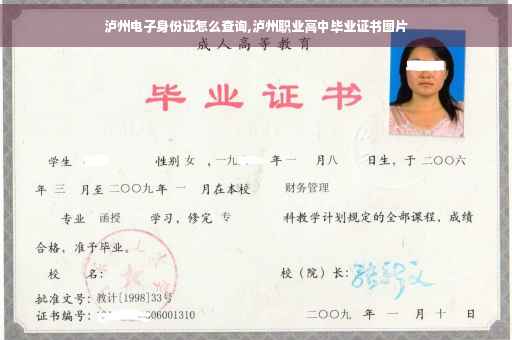 泸州电子身份证怎么查询,泸州职业高中毕业证书图片
成人高等教育
毕业证书
学生 性别 女 ,一九 年 一 月 八 日生，于 二〇〇六
年 三 月至 二〇〇九 年 一 月在本校 财务管理
专业 函授 学习，修完 专 科教学计划规定的全部课程，成绩
合格，准予毕业。
校 名： 校（院）长：
批准文号：教计[1998]33号
证书编号： 06001310 二〇〇九 年 一 月 十 日